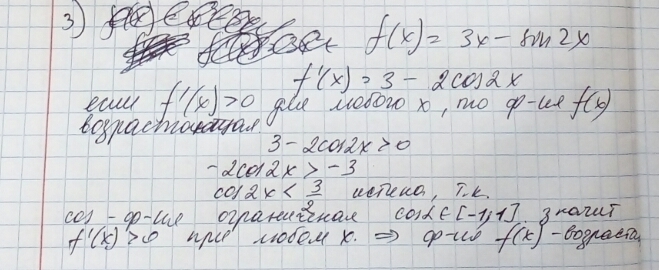 3) f(x) = 3x - sin2x
f'(x) = 3 - 2cos2x
если f'(x)>0 для любого x, то ф-ия f(x)
возрастающая
3 - 2cos2x > 0
-2cos2x > -3
cos2x < 3/2 истина, т.к.
cos - ф-ия ограничная cosα∈[-1,1] значит
f'(x)>0 при любом x. ⇒ ф-ия f(x) - возраста